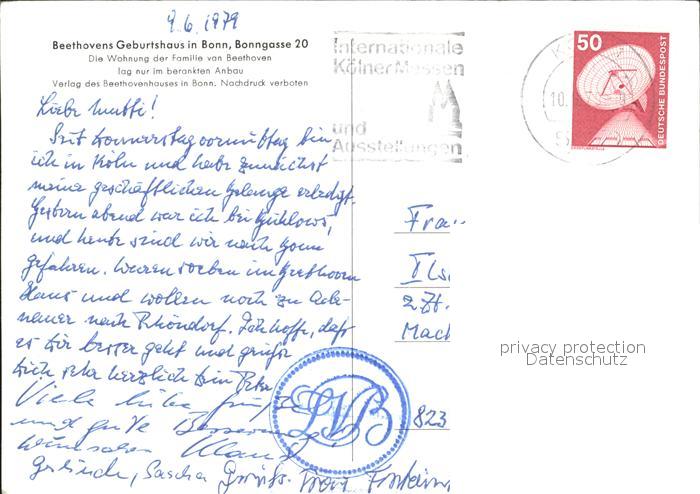 9.6.1979
Beethovens Geburtshaus in Bonn, Bonngasse 20
Die Wohnung der Familie van Beethoven
lag nur im berankten Anbau
Verlag des Beethovenhauses in Bonn. Nachdruck verboten
Internationale
Kölner Messen
und
Ausstellungen
50
DEUTSCHE BUNDESPOST
Liebe Mutti!
Seit Donnerstagvormittag bin
ich in Köln und habe zunächst
meine geschäftlichen Belange erledigt.
Gestern abend war ich bei
und heute sind wir nach Bonn
gefahren. Waren soeben im Beethoven
Haus und wollen noch zu Ade-
nauer nach Rhöndorf. Ich hoffe, daß
es Dir besser geht und grüße
Dich sehr herzlich Dein Peter
Viele liebe Grüße
und gute Besserung
wünschen Klaus
Gerlinde, Sascha
Frau
z.Zt.
823
privacy protection
Datenschutz